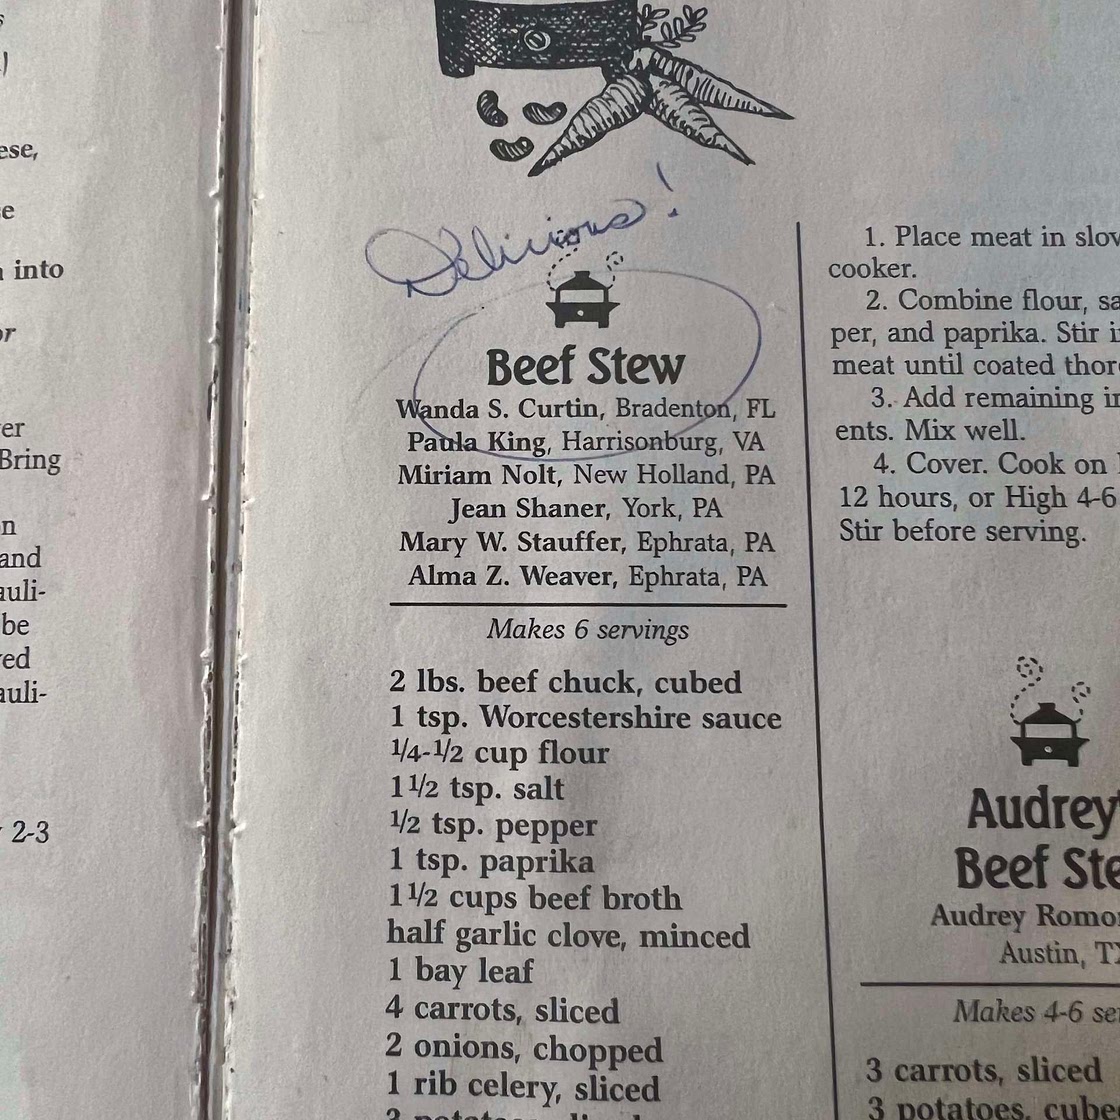 ese,
e
into
or
er
Bring
n
and
auli-
be
ed
auli-
2-3
Delicious!
Beef Stew
Wanda S. Curtin, Bradenton, FL
Paula King, Harrisonburg, VA
Miriam Nolt, New Holland, PA
Jean Shaner, York, PA
Mary W. Stauffer, Ephrata, PA
Alma Z. Weaver, Ephrata, PA
Makes 6 servings
2 lbs. beef chuck, cubed
1 tsp. Worcestershire sauce
1/4-1/2 cup flour
1 1/2 tsp. salt
1/2 tsp. pepper
1 tsp. paprika
1 1/2 cups beef broth
half garlic clove, minced
1 bay leaf
4 carrots, sliced
2 onions, chopped
1 rib celery, sliced
1. Place meat in slow
cooker.
2. Combine flour, sa
per, and paprika. Stir i
meat until coated thor
3. Add remaining in
ents. Mix well.
4. Cover. Cook on
12 hours, or High 4-6
Stir before serving.
Audrey'
Beef Ste
Audrey Romo
Austin, TX
Makes 4-6 se
3 carrots, sliced
3 potatoes, cube